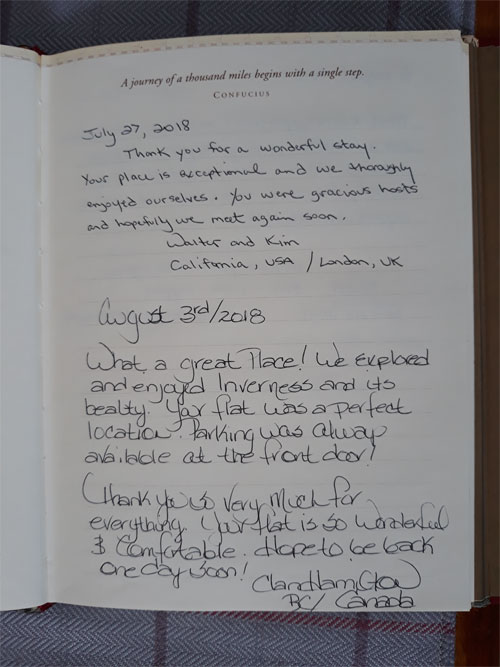 A journey of a thousand miles begins with a single step.
CONFUCIUS
July 27, 2018
Thank you for a wonderful stay.
Your place is exceptional and we thoroughly
enjoyed ourselves. You were gracious hosts
and hopefully we meet again soon.
Walter and Kim
California, USA / London, UK
August 3rd/2018
What a great Place! We explored
and enjoyed Inverness and its
beauty. Your flat was a perfect
location. Parking was always
available at the front door!
Thank you so very much for
everything. Your flat is so wonderful
& Comfortable. Hope to be back
one day soon!
BC/ Canada